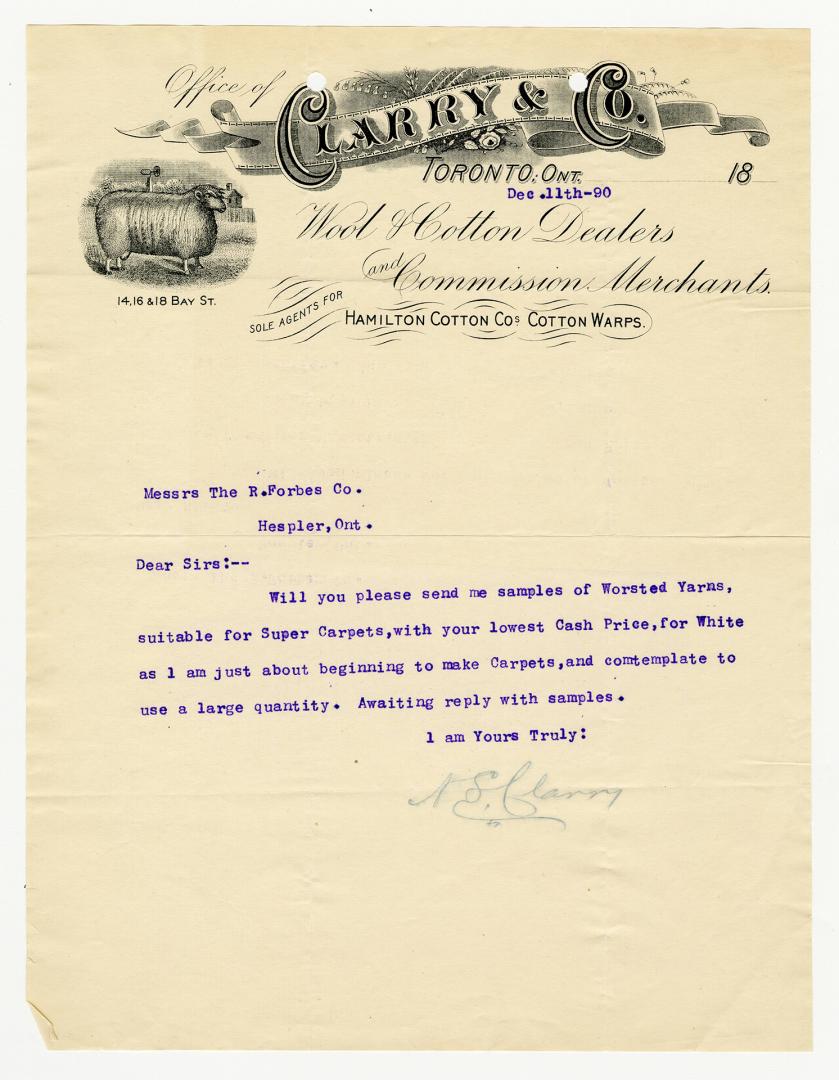 Office of CLARRY & CO.
TORONTO, ONT. 18
Dec.11th-90
Wool & Cotton Dealers
and Commission Merchants.
14, 16 & 18 BAY ST.
SOLE AGENTS FOR HAMILTON COTTON COS COTTON WARPS.
Messrs The R.Forbes Co.
Hespler,Ont.
Dear Sirs:--
Will you please send me samples of Worsted Yarns,
suitable for Super Carpets,with your lowest Cash Price,for White
as l am just about beginning to make Carpets,and comtemplate to
use a large quantity. Awaiting reply with samples.
l am Yours Truly:
N S. Clarry